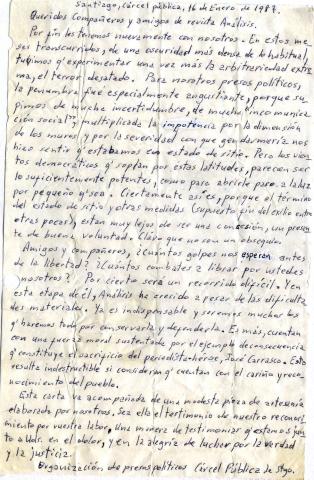 Santiago, Cárcel pública, 16 de Enero de 1987.
Queridos Compañeros y amigos de revista Análisis.
Por fin los tenemos nuevamente con nosotros. En estos me
ses transcurridos, de una oscuridad más densa de lo habitual,
tuvimos q' experimentar una vez más la arbitrariedad extre
ma, el terror desatado. Para nosotros presos políticos,
la penumbra fue especialmente angustiante, porque su
pimos de mucha incertidumbre, de mucha "incomunica
ción social", multiplicada la impotencia por la dimensión
de los muros y por la severidad con que gendarmería nos
hizo sentir q' estábamos con estado de sitio. Pero los vien
tos democráticos q' soplan por éstas latitudes, parecen ser
lo suficientemente potentes, como para abrirle paso a la luz
por pequeño q' sea. Ciertamente así es, porque el término
del estado de sitio y otras medidas (supuesto fin del exilio entre
otras pocas), están muy lejos de ser una concesión, un presen
te de buena voluntad. Claro que no son un obsequio.
Amigos y compañeros, ¿cuántos golpes nos esperan antes
de la libertad? ¿Cuántos combates a librar por ustedes
nosotros? Por cierto será un recorrido difícil. Y en
esta etapa de él, Análisis ha crecido a pesar de las dificulta
des materiales. Ya es indispensable y seremos muchos los
q' haremos todo por conservarla y defenderla. Es más, cuentan
con una fuerza moral sustentada por el ejemplo de consecuencia
q' constituye el sacrificio del periodista-héroe, José Carrasco. Esto
resulta indestructible si consideran q' cuentan con el cariño y reco
nocimiento del pueblo.
Esta carta va acompañada de una modesta pieza de artesanía
elaborada por nosotros. Sea ella el testimonio de nuestro reconoci
miento por vuestra labor. Una manera de testimoniar q' estamos jun
to a Uds. en el dolor, y en la alegría de luchar por la verdad
y la justicia.
Organización de presos políticos Cárcel Pública de Stgo.